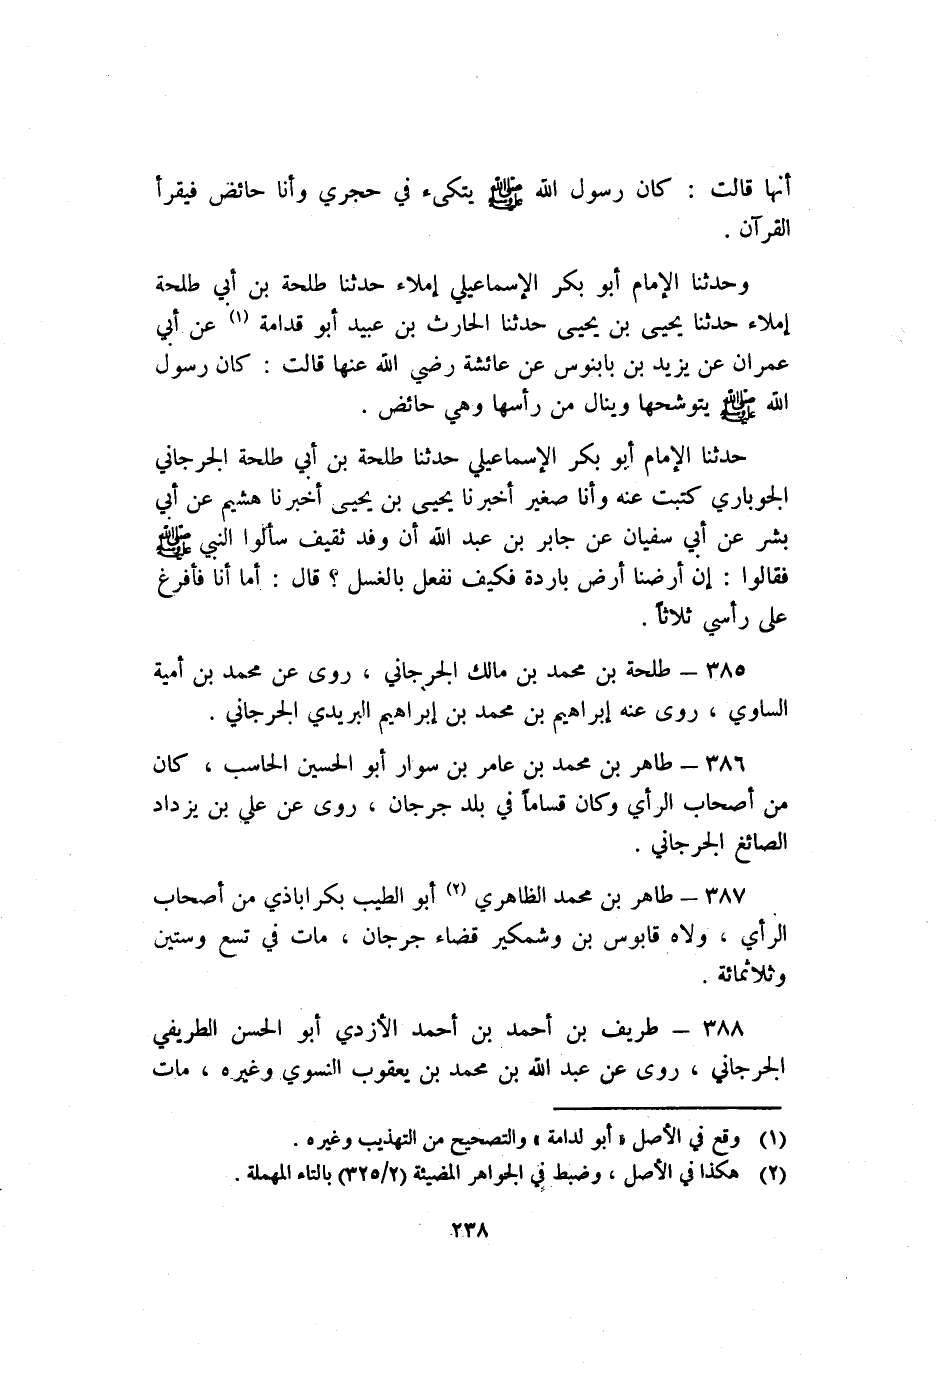 أنها قالت : كان رسول الله ﷺ يتكىء في حجري وأنا حائض فيقرأ
القرآن .
وحدثنا الإمام أبو بكر الإسماعيلي إملاء حدثنا طلحة بن أبي طلحة
إملاء حدثنا يحيى بن يحيى حدثنا الحارث بن عبيد أبو قدامة (١) عن أبي
عمران عن يزيد بن بابنوس عن عائشة رضي الله عنها قالت : كان رسول
الله ﷺ يتوشحها وينال من رأسها وهي حائض .
حدثنا الإمام أبو بكر الإسماعيلي حدثنا طلحة بن أبي طلحة الجرجاني
الجوباري كتبت عنه وأنا صغير أخبرنا يحيى بن يحيى أخبرنا هشيم عن أبي
بشر عن أبي سفيان عن جابر بن عبد الله أن وفد ثقيف سألوا النبي ﷺ
فقالوا : إن أرضنا أرض باردة فكيف نفعل بالغسل ؟ قال : أما أنا فأفرغ
على رأسي ثلاثاً .
٣٨٥ – طلحة بن محمد بن مالك الجرجاني ، روى عن محمد بن أمية
الساوي ، روى عنه إبراهيم بن محمد بن إبراهيم البريدي الجرجاني .
٣٨٦ – طاهر بن محمد بن عامر بن سوار أبو الحسين الحاسب ، كان
من أصحاب الرأي وكان قساماً في بلد جرجان ، روى عن علي بن يزداد
الصائغ الجرجاني .
٣٨٧ – طاهر بن محمد الظاهري (٢) أبو الطيب بكراباذي من أصحاب
الرأي ، ولاه قابوس بن وشمكير قضاء جرجان ، مات في تسع وستين
وثلاثمائة .
٣٨٨ – طريف بن أحمد بن أحمد الأزدي أبو الحسن الطريفي
الجرجاني ، روى عن عبد الله بن محمد بن يعقوب النسوي وغيره ، مات
(١) وقع في الأصل « أبو لدامة » والتصحيح من التهذيب وغيره .
(٢) هكذا في الأصل ، وضبط في الجواهر المضيئة (٣٢٥/٢) بالتاء المهملة .
٢٣٨